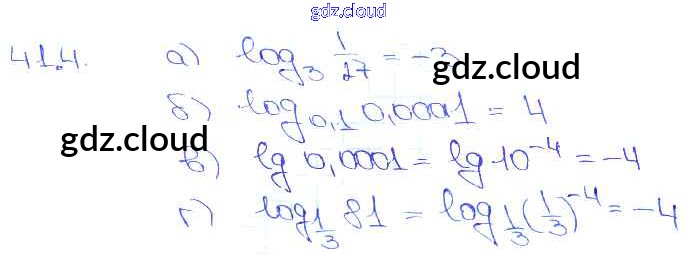 gdz.cloud
41.4. а) log₃ 1/27 = -3
gdz.cloud
б) log₀,₁ 0,0001 = 4
gdz.cloud
в) lg 0,0001 = lg 10⁻⁴ = -4
г) log_{1/3} 81 = log_{1/3} (1/3)⁻⁴ = -4